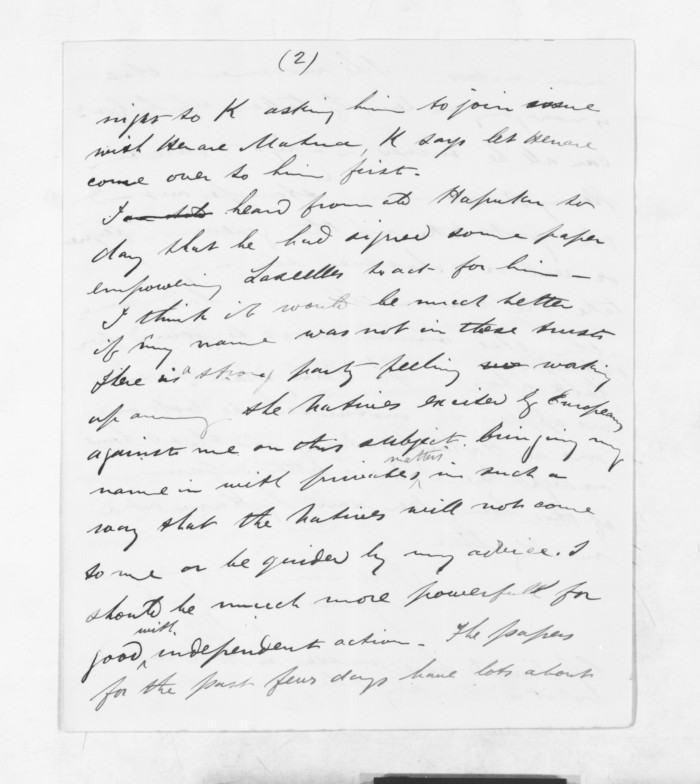 (2)
night to K asking him to join issue
with Henare Matua, K says let Henare
come over to him first.
I heard from Hapuku to
day that he had signed some paper
empowering Lascelles to act for him —
I think it would be much better
if my name was not in these trusts
there is a strong party feeling working
up among the Natives excited by Europeans
against me on this subject. bringing my
name in with private matters, in such a
way that the Natives will not come
to me or be guided by my advice. I
should be much more powerful for
good with independent action - The papers
for the past few days have lots about